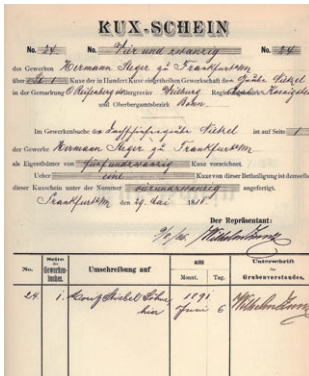 KUX-SCHEIN
No. 24 No. Vier und zwanzig No. 24
des Gewerken Hermann Steger zu Frankfurt a/M
über St 1 Kuxe der in Hundert Kuxe eingetheilten Gewerkschaft der Grube Nickel
in der Gemarkung O Reifenberg Bergrevier Weilburg
und Oberbergamtsbezirk Bonn.
Im Gewerkenbuche der Nickel ist auf Seite 1
der Gewerke Hermann Steger zu Frankfurt a/M
als Eigenthümer von fünfundzwanzig Kuxe verzeichnet.
Ueber eine Kuxe von dieser Betheiligung ist demselben
dieser Kuxschein unter der Nummer vierundzwanzig angefertigt.
Frankfurt a/M den 29. Mai
Der Repräsentant:
No. Seite des Gewerkenbuches. Umschreibung auf am Monat. Tag. Unterschrift des Grubenvorstandes.
24. 1. Söhne 1891
hier Juni 6